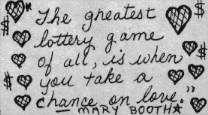 "The greatest
lottery game
of all, is when
you take a
chance on love."
— MARY BOOTH